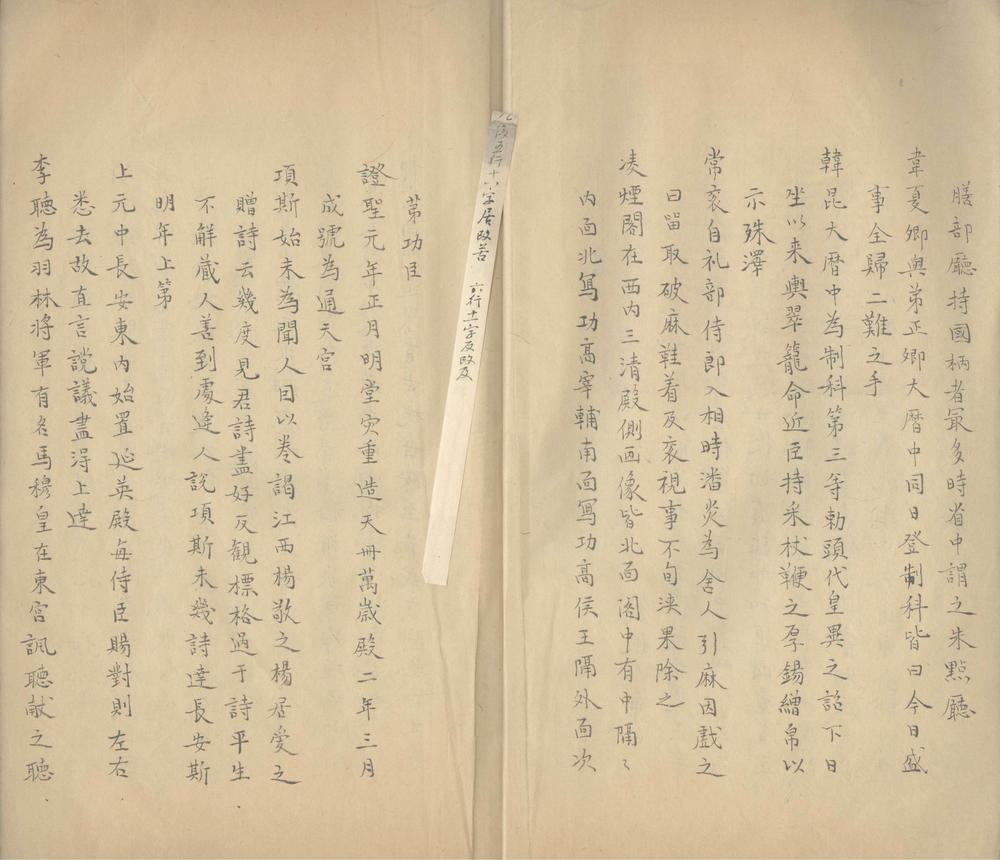 膳部廳持國柄者冣多時省中謂之朱㸃廳
韋夏卿與弟正卿大曆中同日登制科皆曰今日盛
事全歸二難之手
韓昆大曆中為制科第三等勅頭代皇異之詔下日
坐以来輿翠籠命近臣持采杖鞭之厚錫繒帛以
示殊澤
常衮自礼部侍郎入相時潘炎為舍人引麻因戲之
曰留取破麻鞋着及衮視事不旬浹果除之
凌煙閣在西内三清殿側画像皆北面閣中有中隔〻
内面北寫功高宰輔南面寫功高侯王隔外面次
後五行十八字居改苦
六行十一字反改及
第功臣
證聖元年正月明堂灾重造天冊萬歲殿二年三月
成號為通天宫
項斯始未為聞人因以卷謁江西楊敬之楊居愛之
贈詩云幾度見君詩盡好反觀標格過于詩平生
不解藏人善到處逢人說項斯未幾詩達長安斯
明年上第
上元中長安東内始置延英殿每侍臣賜對則左右
悉去故直言讜議盡淂上達
李聽為羽林將軍有名馬穆皇在東宫諷聽献之聽